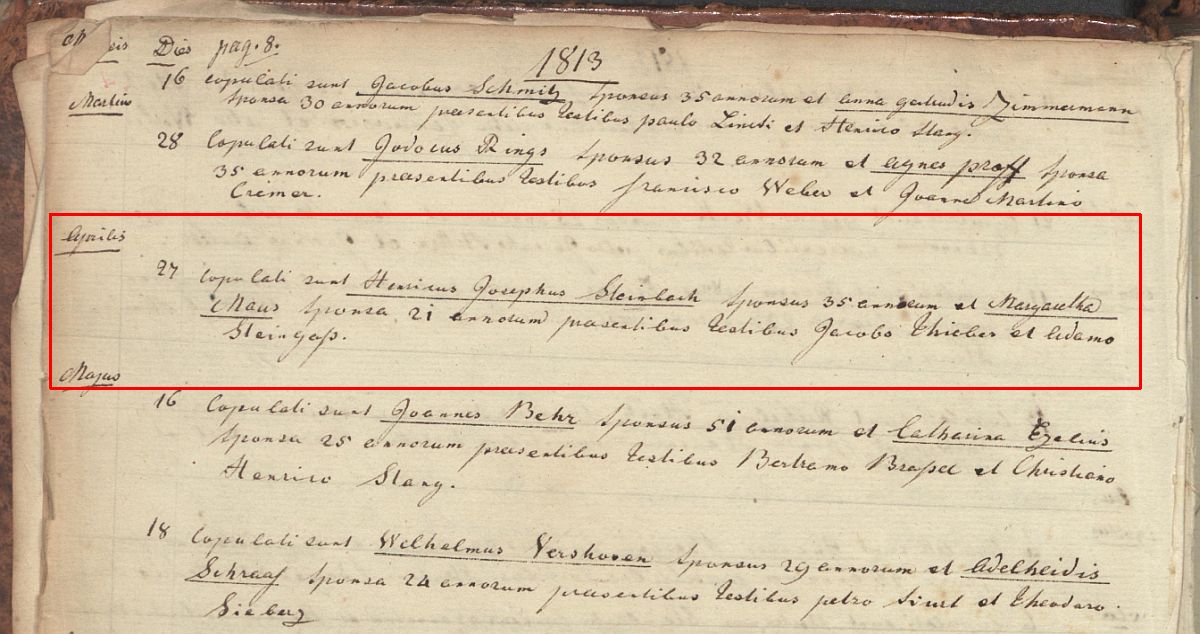 Dies pag. 8.
1813
16 Copulati sunt Jacobus Schmitz sponsus 35 annorum et anna gertrudis Zimmermann
Martius
sponsa 30 annorum praesentibus testibus paulo et Henrico Stang.
28 Copulati sunt Jodocus Rings sponsus 32 annorum et agnes proff sponsa
35 annorum praesentibus testibus francisco Weber et Joanne Martino
Cremer.
Aprilis
27 Copulati sunt Henricus Josephus Steinbach sponsus 35 annorum et Margaretha
Maus sponsa 21 annorum praesentibus testibus Jacobo Thieber et Adamo
Steingass.
Majus
16 Copulati sunt Joannes Behr sponsus 51 annorum et Catharina Ezelius
sponsa 25 annorum praesentibus testibus Bertramo Brassel et Christiano
Henrico Stang.
18 Copulati sunt Welhelmus Vershoven sponsus 29 annorum et Adelheidis
Schraaf sponsa 24 annorum praesentibus testibus petro et theodoro
Sieberz